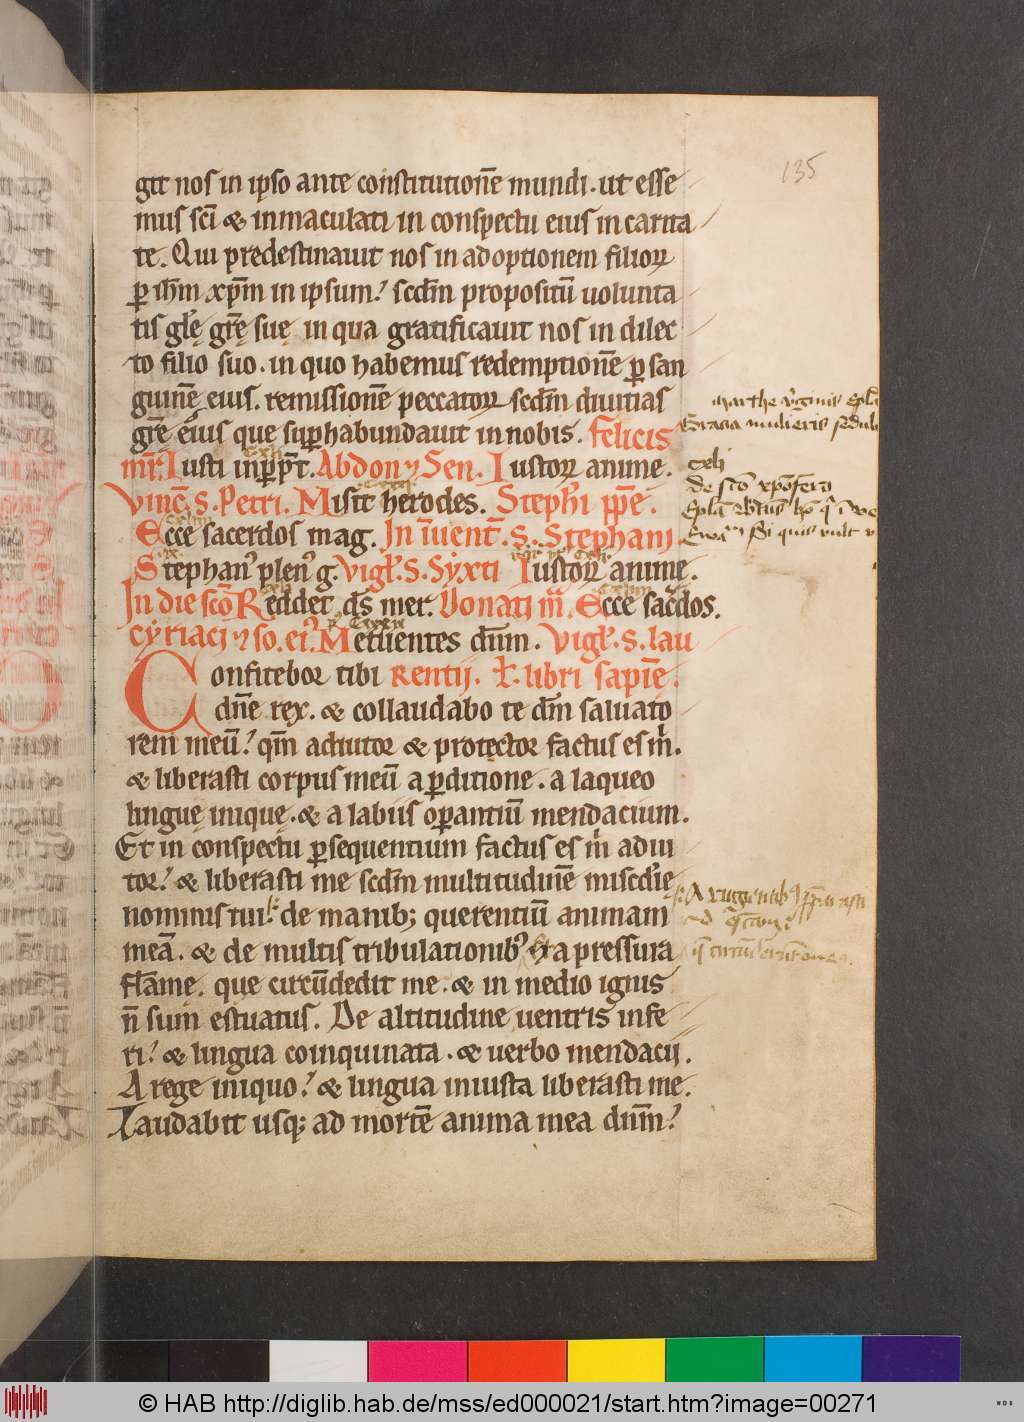 135
git nos in ipso ante constitutionē mundi. ut esse
mus sc̄i & inmaculati in conspectu eius in carita
te. Qui predestinauit nos in adoptionem filioꝝ
ꝑ ih̄m xp̄m in ipsum? scd̄m propositū uolunta
tis gl̄ę gr̄ę suę in qua gratificauit nos in dilec
to filio suo. in quo habemus redemptionē ꝑ san
guinē eius. remissionē peccatoꝝ scd̄m diuitias
gr̄ę eius que suꝑhabundauit in nobis. Felicis
mr̄. Iusti in ꝑpt̄. Abdon ⁊ Sen. Iustoꝝ anime.
Vinc̄. S. Petri. Misit herodes. Steph̄i pp̄e.
Ecce sacerdos mag. In īuent̄. S. Stephani
Stephanꝰ plenꝰ g. Vigl̄. S. Syxti Iustoꝝ anime.
In die sc̄o Reddet ds̄ mer. Donati m̄. Ecce sac̄dos.
Cyriaci ⁊ so. eiꝰ. Metuentes dn̄m. Vigl̄. S. lau
Confitebor tibi rentij. ł. libri sapiē.
dn̄e rex. & collaudabo te dm̄ saluato
rem meū? qm̄ adiutor & protector factus es m̄.
& liberasti corpus meū a ꝑditione. a laqueo
linguę inique. & a labiis oꝑantiū mendacium.
Et in conspectu ꝑsequentium factus es m̄ adiu
tor? & liberasti me scd̄m multitudinē misc̄die
nominis tui. de manibꝫ querentiū animam
meā. & de multis tribulationibꝰ & a pressura
flāme. que circūdedit me. & in medio ignis
n̄ sum estuatus. De altitudine uentris infe
ri? & lingua coinquinata. & uerbo mendacij.
A rege iniquo? & lingua iniusta liberasti me.
Laudabit usqꝫ ad mortē anima mea dnm̄?
marthe v̄ginis epl̄a
Gracia mulieris sedul
cxlj
de sc̄o xp̄oforo
© HAB http://diglib.hab.de/mss/ed000021/start.htm?image=00271